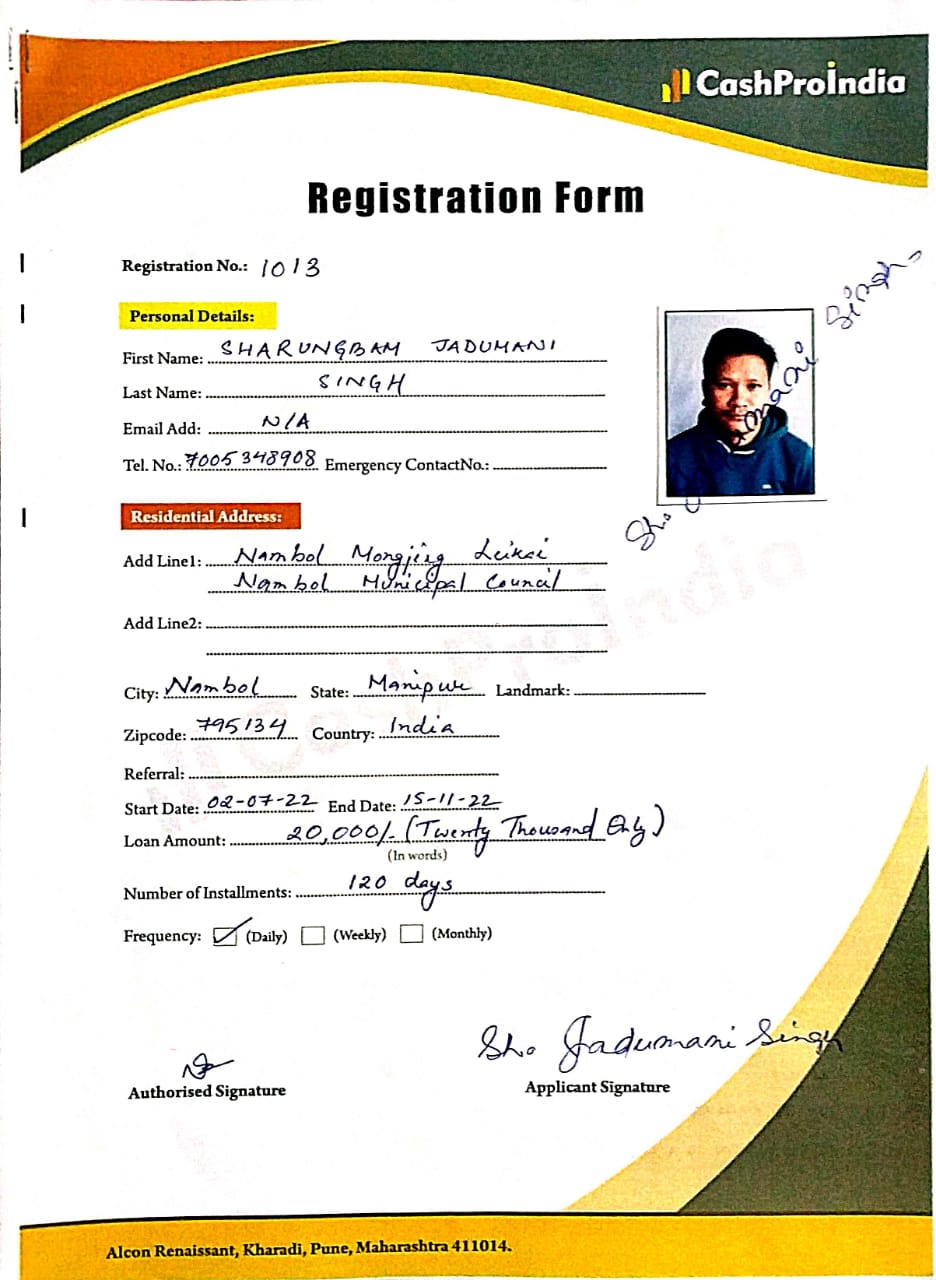 CashProIndia
Registration Form
Registration No.: 1013
Personal Details:
First Name: SHARUNGBAM JADUMANI
Last Name: SINGH
Email Add: N/A
Tel. No.: 7005348908 Emergency ContactNo.:
Residential Address:
Add Line1: Nambol Mongjing Leikai
Nambol Municipal Council
Add Line2:
City: Nambol State: Manipur Landmark:
Zipcode: 795134 Country: India
Referral:
Start Date: 02-07-22 End Date: 15-11-22
Loan Amount: 20,000/- (Twenty Thousand Only)
(In words)
Number of Installments: 120 days
Frequency: (Daily) (Weekly) (Monthly)
Sho Jadumani Singh
Authorised Signature
Applicant Signature
Alcon Renaissant, Kharadi, Pune, Maharashtra 411014.